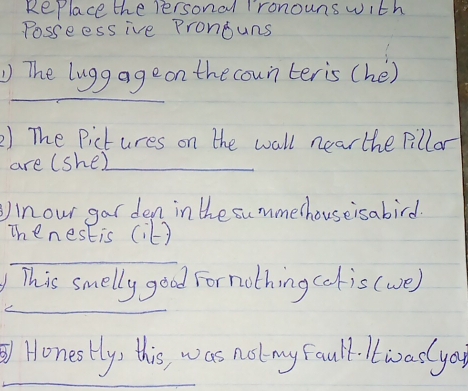 Replace the Personal Pronouns with
Posseess ive Pronouns
1) The luggage on the coun ter is (he)
2) The Pictures on the wall near the Pillar
are (she)
3) In our garden in the summerhouse is a bird.
The nest is (it)
This smelly good for nothing cat is (we)
5) Honestly, this, was not my Fault. It was (you)